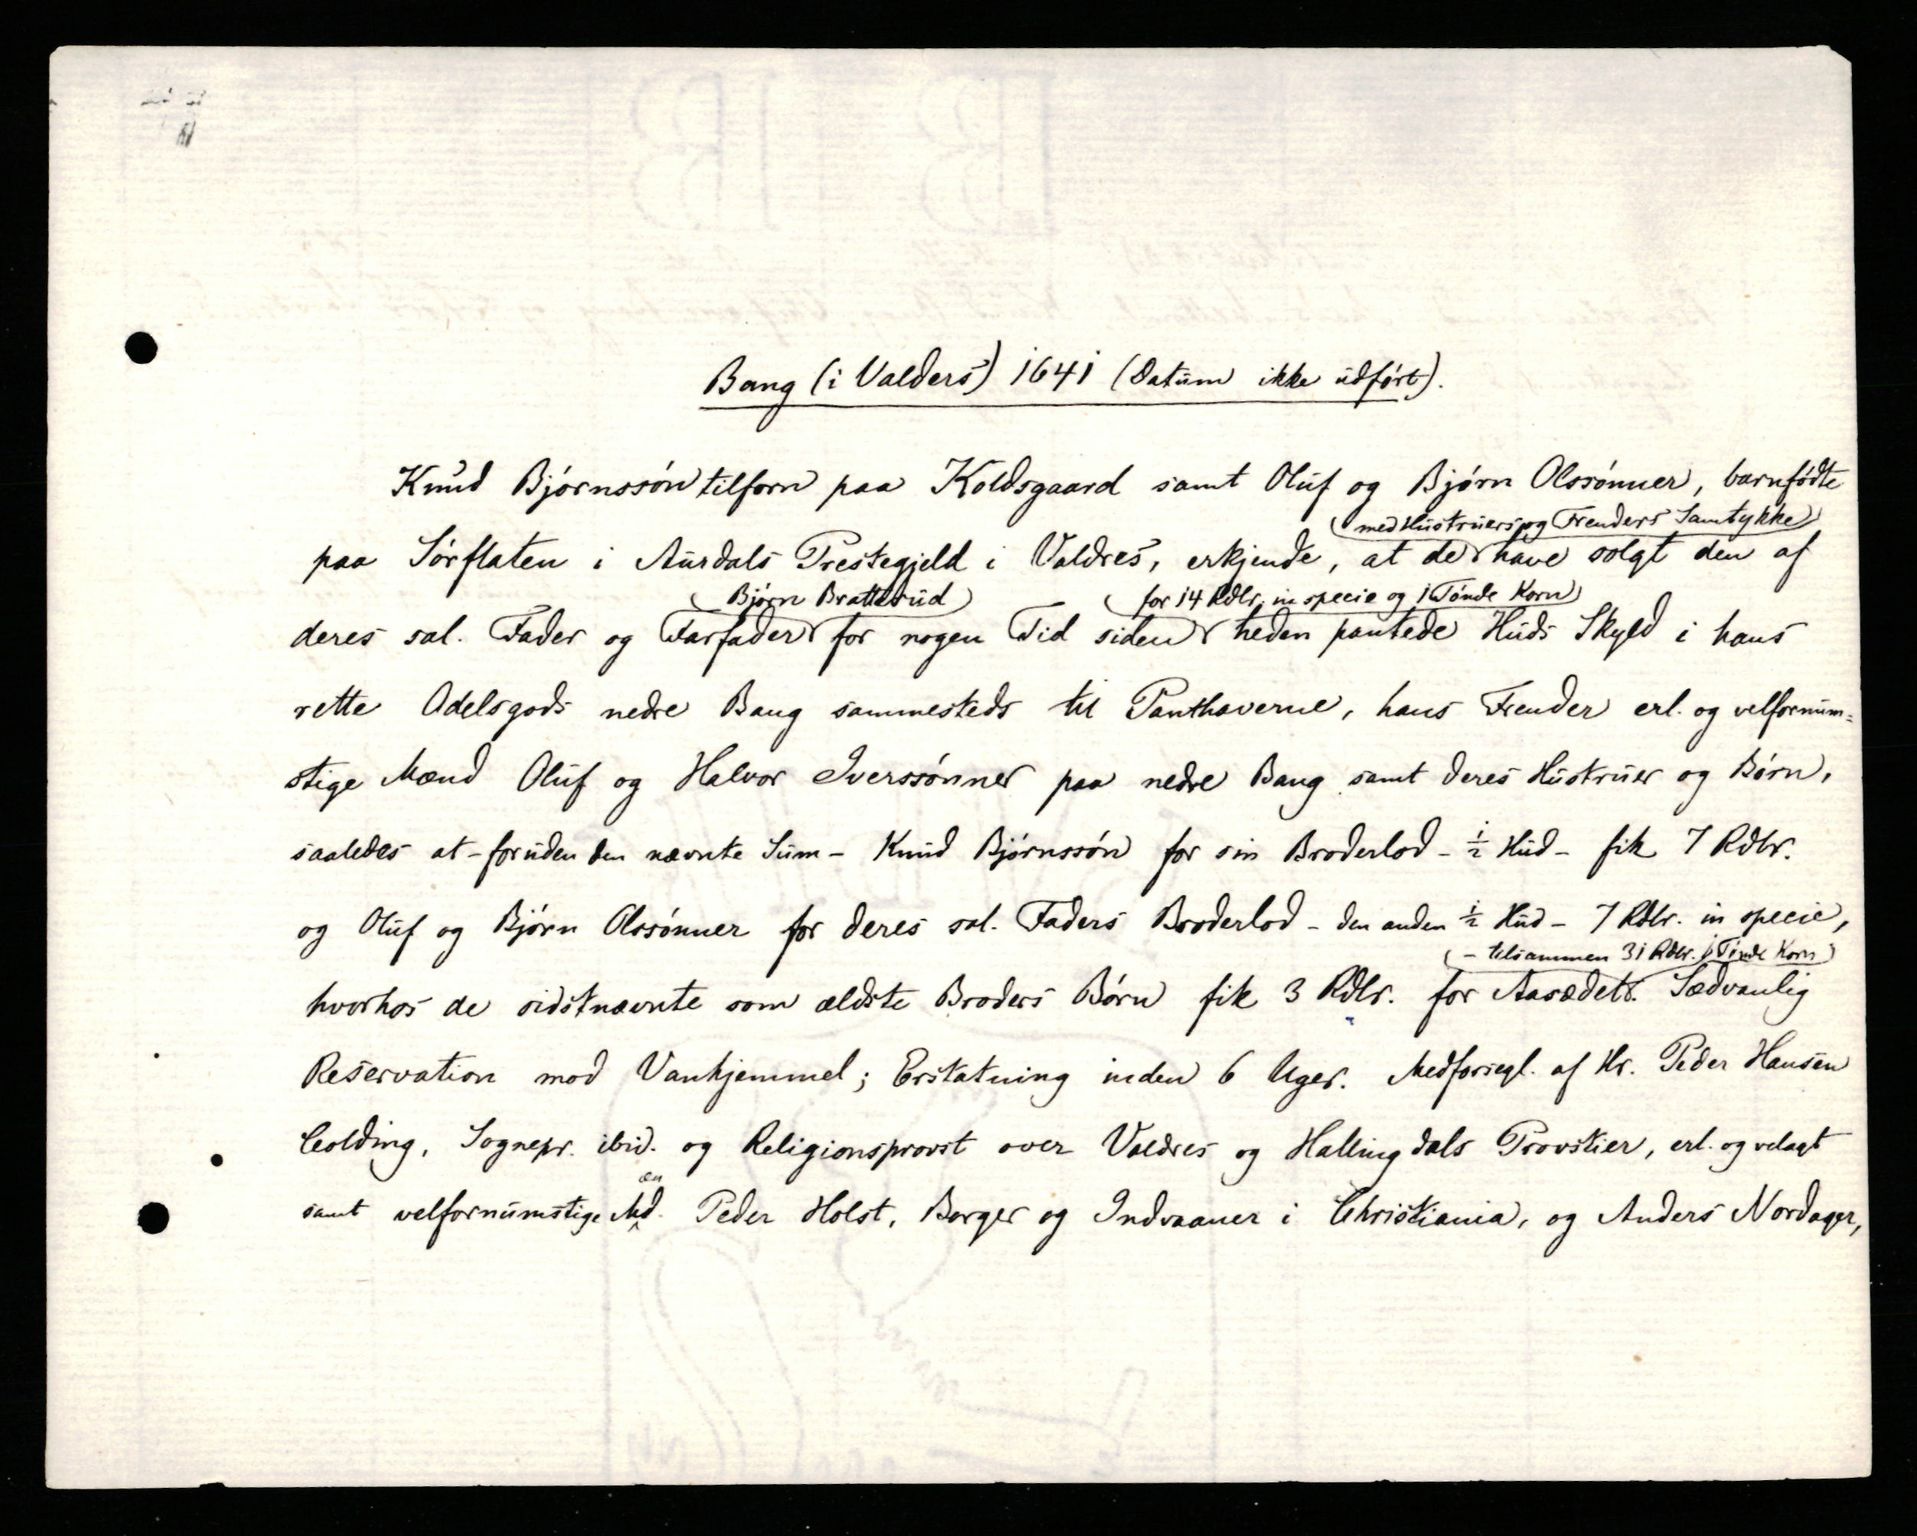 Bang (i Valders) 1641 (Datum ikke udført).
Knud Bjørnssøn tilforn paa Koldsgaard samt Oluf og Bjørn Olssønner, barnfødte
(med Hustruers og Frenders Samtykke)
paa Sørflaten i Aurdals Prestegjeld i Valdres, erkjende, at de have solgt den af
(Bjørn Bratterud) (for 14 Rdlr. in specie og 1 Tønde Korn)
deres sal. Fader og Farfader for nogen Tid siden heden pantede Huds Skyld i hans
rette Odelsgods nedre Bang sammesteds til Panthaverne, hans Frender erl. og velfornum=
stige Mænd Oluf og Halvor Iverssønner paa nedre Bang samt deres Hustruer og Børn,
saaledes at - foruden den nævnte Sum - Knud Bjørnssøn for sin Broderlod - ½ Hud - fik 7 Rdlr.
og Oluf og Bjørn Olssønner for deres sal. Faders Broderlod - den anden ½ Hud - 7 Rdlr. in specie,
(- tilsammen 31 Rdlr. 1 Tønde Korn)
hvorhos de sidstnævnte som ældste Broders Børn fik 3 Rdlr. for Aasædet. Sædvanlig
Reservation mod Vanhjemmel; Erstatning inden 6 Uger. Medforsegl. af Hr. Peder Hansen
Colding, Sognepr. ibid. og Religionsprovst over Valdres og Hallingdals Provstier, erl. og velagt
samt velfornumstige Mænd Peder Holst, Borger og Indvaaner i Christiania, og Anders Nordager,